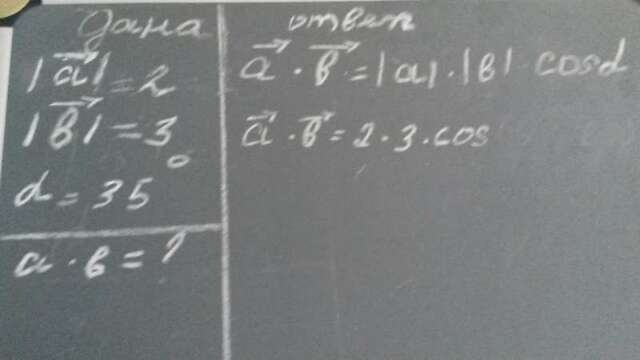 Дана
|a⃗| = 2
|b⃗| = 3
α = 35°
a · b = ?
ответ
a⃗ · b⃗ = |a| · |b| · cosα
a⃗ · b⃗ = 2 · 3 · cos